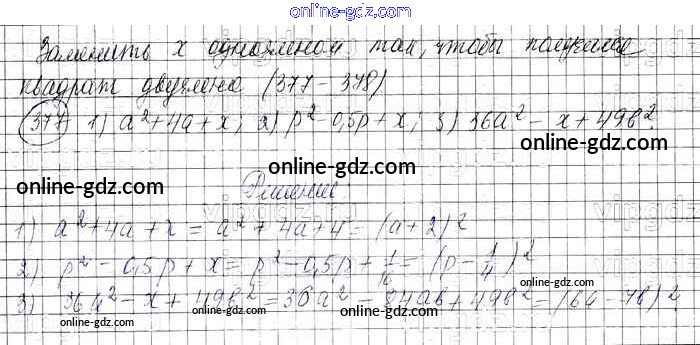 online-gdz.com
Заменить x одночленом так, чтобы получился
квадрат двучлена (377 - 378)
377 1) a²+4a+x; 2) p²-0,5p+x; 3) 36a²-x+49b².
online-gdz.com
online-gdz.com
Решение
vipgdz.ru
1) a²+4a+x = a²+4a+4 = (a+2)²
online-gdz.com
2) p²-0,5p+x = p²-0,5p+1/16 = (p-1/4)²
online-gdz.com
3) 36a²-x+49b² = 36a²-84ab+49b² = (6a-7b)².
online-gdz.com
online-gdz.com